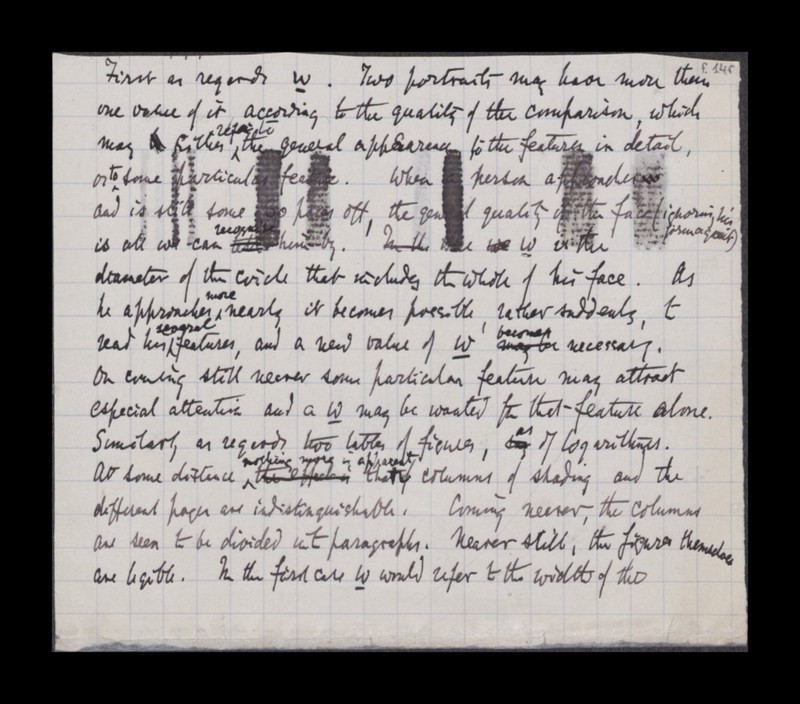 f. 145
First as regards w. Two portraits may have more than
one value of it according to the quality of the comparison, which
may either refer to the general appearance, to the features in detail,
or to some particular feature. When a person approaches
and is still some paces off, the general quality of the face (ignoring his
is all we can recognise him by. In the case w is the
diameter of the circle that includes the whole of his face. As
he approaches more nearly it becomes possible, rather suddenly, to
read his several features, and a new value of w becomes necessary.
On coming still nearer some particular feature may attract
especial attention and a w may be wanted for that feature alone.
Similarly as regards two tables of figures, as of logarithms.
At some distance nothing more is apparent than columns of shading and the
different pages are indistinguishable. Coming nearer, the columns
are seen to be divided into paragraphs. Nearer still, the figures themselves
are legible. In the first case w would refer to the width of the